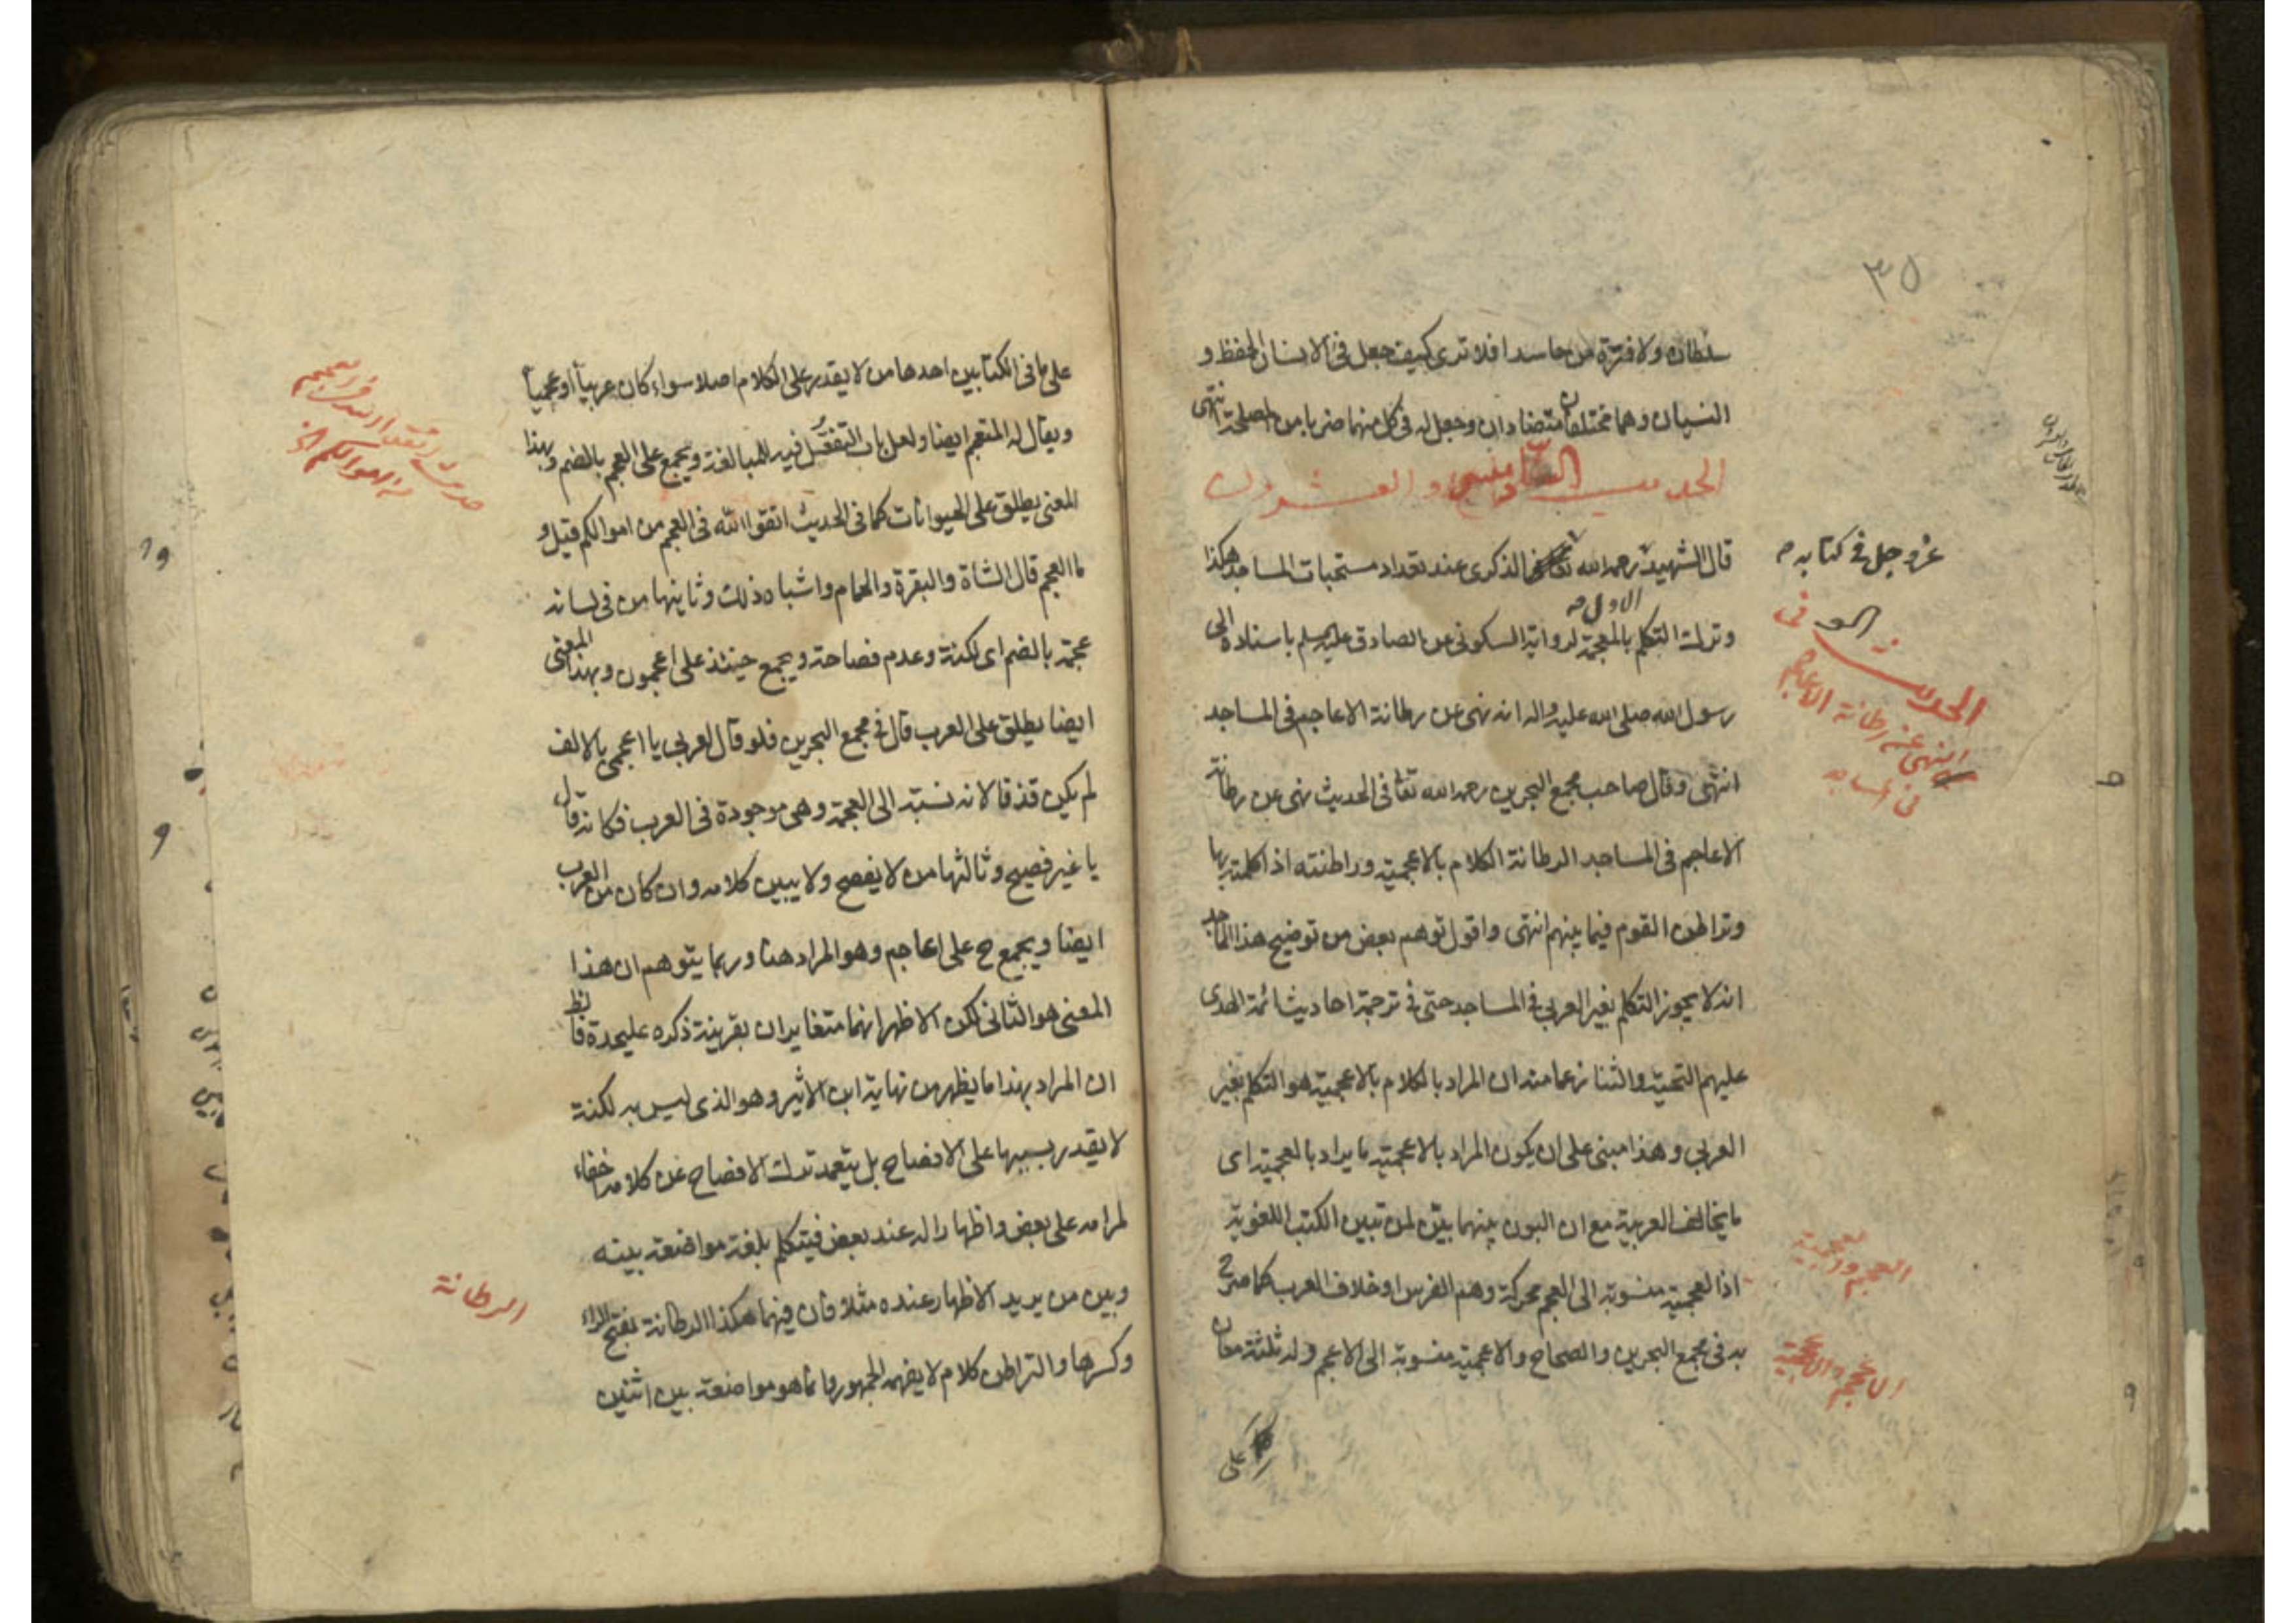 ٣٥
سلطان ولا قترة من حاسد افلا ترى كيف جعل فى الانسان الحفظ و
النسيان وهما مختلفان متضادان وجعل له فى كل منهما ضربا من المصلحة انتهى
الحديث والعشرون
قال الشهيد رحمه الله فى الذكرى عند تعداد مستحبات المساجد هكذا
عز وجل فى كتابه
الاول
وترك التكلم بالعجمة لرواية السكونى عن الصادق عليه السلم باسناده الى
رسول الله صلى الله عليه واله انه نهى عن رطانة الاعاجم فى المساجد
انتهى وقال صاحب مجمع البحرين رحمه الله تعا فى الحديث نهى عن رطانة
الاعاجم فى المساجد الرطانة الكلام بالاعجمية وراطنته اذا كلمته بها
وتراطن القوم فيما بينهم انتهى واقول توهم بعض من توضيح هذا الماجد
انه لا يجوز التكلم بغير العربى فى المساجد حتى فى ترجمة احاديث ائمة الهدى
عليهم التحية والثنا زعما منه ان المراد بالكلام بالاعجمية هو التكلم بغير
العربى وهذا مبنى على ان يكون المراد بالاعجمية ما يراد بالعجمية اى
ما يخالف العربية مع ان البون بينهما بيّن لمن تبين الكتب اللغوية
اذ العجمية منسوبة الى العجم محركة وهم الفرس او خلاف العرب كما صرح
به فى مجمع البحرين والصحاح والاعجمية منسوبة الى الاعجم وله ثلثة معان
على
الحديث
النهى عن رطانة الاعاجم
فى المساجد
العجم والعجمية
الاعجم والاعجمية
على ما فى الكتابين احدها من لا يقدر على الكلام اصلا سواء كان عربيا او عجميا
ويقال له المتعجم ايضا ولعل باب التفعّل فيه للمبالغة ويجمع على العجم بالضم وبهذا
المعنى يطلق على الحيوانات كما فى الحديث اتقوا الله فى العجم من اموالكم قيل و
ما العجم قال الشاة والبقرة والحمام واشباه ذلك وثانيها من فى لسانه
عجمة بالضم اى لكنة وعدم فصاحة ويجمع حينئذ على اعجمون وبهذا المعنى
ايضا يطلق على العرب قال فى مجمع البحرين فلو قال لعربى يا اعجمى بالالف
لم يكن قذفا لانه نسبه الى العجمة وهى موجودة فى العرب فكانه قال
يا غير فصيح وثالثها من لا يفصح ولا يبين كلامه وان كان من العرب
ايضا ويجمع ح على اعاجم وهو المراد هنا وربما يتوهم ان هذا
المعنى هو الثانى لكن الاظهر انهما متغايران بقرينة ذكره عليحدة فالظ
ان المراد بهذا ما يظهر من نهاية ابن الاثير وهو الذى ليس به لكنة
لا يقدر بسببها على الافصاح بل يتعمد ترك الافصاح عن كلامه اخفاء
لمرامه على بعض واظهارا له عند بعض فيتكلم بلغة مواضعة بينه
وبين من يريد الاظهار عنده مثلا فان فيها هكذا الرطانة بفتح الراء
وكسرها والتراطن كلام لا يفهمه الجمهور وانما هو مواضعة بين اثنين
الرطانة